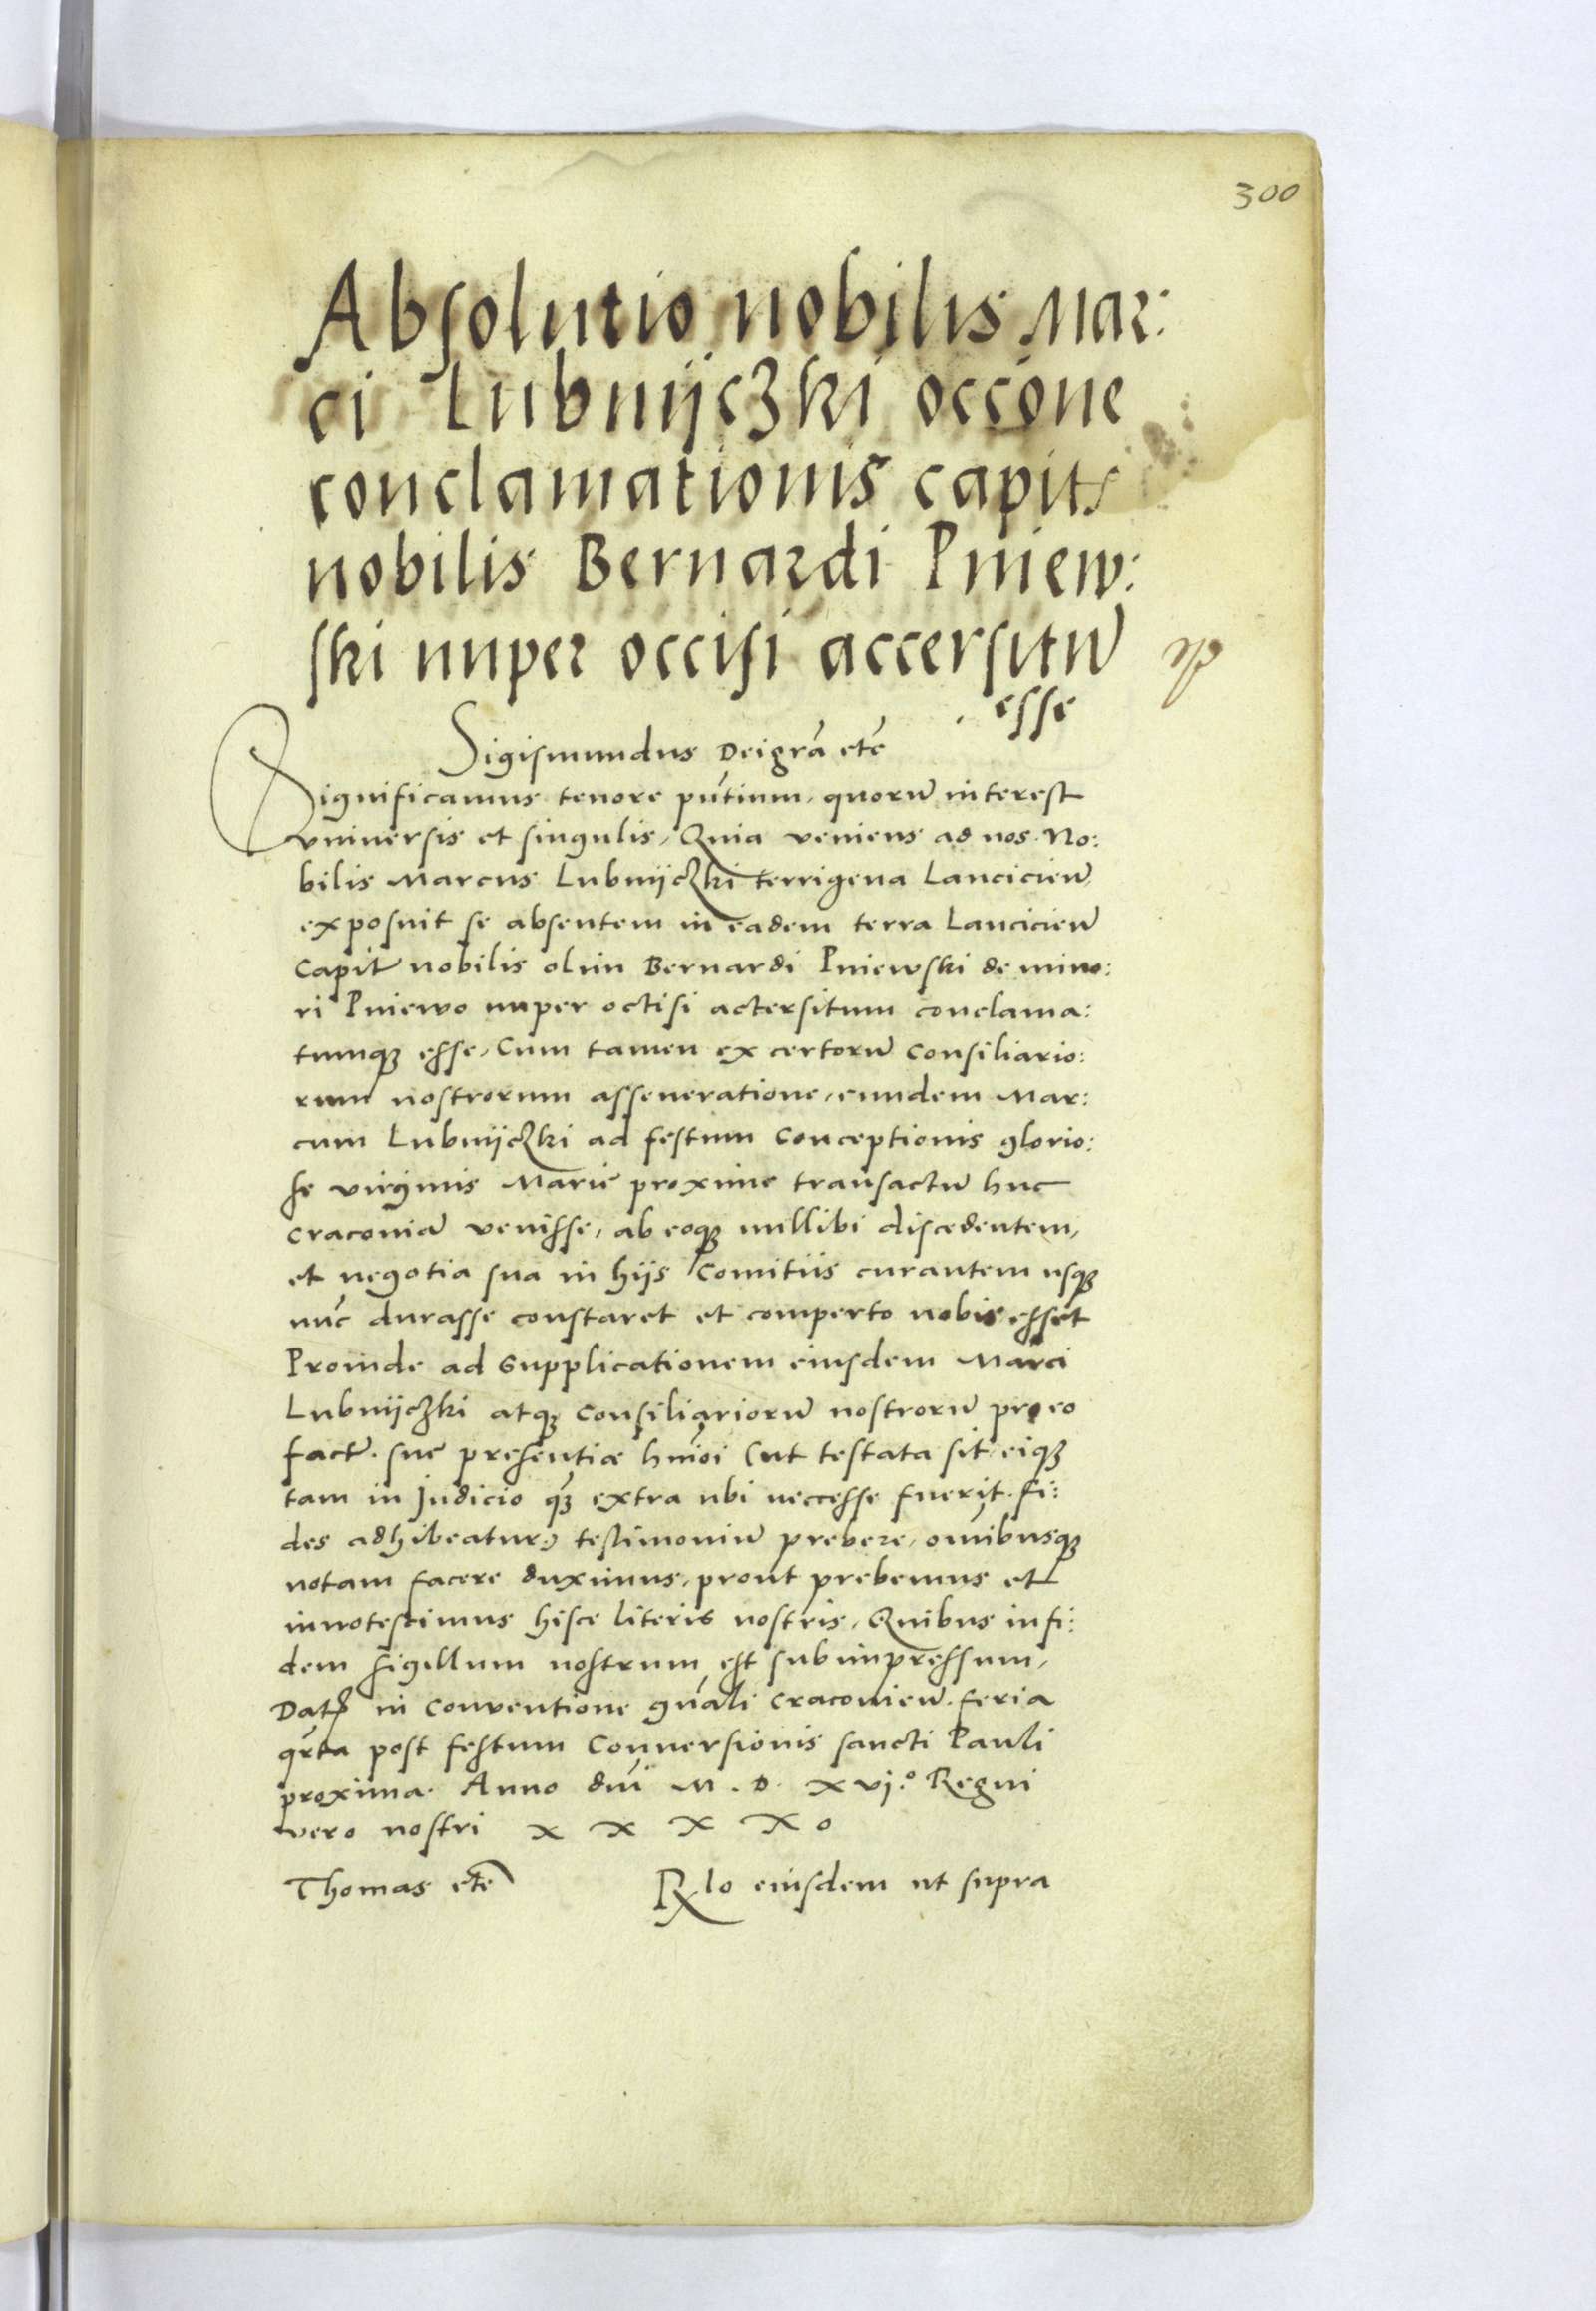 300
Absolutio nobilis Mar:
ci Lubnijczki occōne
conclamationis capit
nobilis Bernardi Pniew:
ski nuper occisi accersitū
esse
Sigismundus Dei grā etc̄
Significamus tenore pn̄tium, quorū interest
vniuersis et singulis, Quia veniens ad nos. No:
bilis Marcus Lubnijczki terrigena Lancicien̄
exposuit se absentem in eadem terra Lancicien̄
Capit nobilis olim Bernardi Pniewski de mino:
ri Pniewo nuper occisi accersitum conclama:
tumq esse, Cum tamen ex certorū Consiliario:
rum nostrorum asseueratione, eundem Mar:
cum Lubnijczki ad festum Conceptionis glorio:
se virginis Marie proxime transactū huc
Cracouiā venisse, ab eoq nullibi discedentem,
et negotia sua in hijs Comitiis curantem usq
nūc durasse constaret et comperto nobis esset
Proinde ad Supplicationem eiusdem Marci
Lubnijczki atq Consiliariorū nostrorū pro eo
fact. sue presentiæ hmōi (ut testata sit eiq
tam in Judicio q̄ extra ubi neccesse fuerit. fi:
des adhibeatur) testimoniū prebere, omībusq
notam facere duximus, prout prebemus et
innotescimus hisce literis nostris, Quibus in fi:
dem sigillum nostrum est subimpressum,
Dat in Conuentione gn̄ali Cracouien̄. feria
qr̄ta post festum Conuersionis sancti Pauli
proxima. Anno dn̄i M. D. xvj.º Regni
vero nostri x x x x o
Thomas etc̄ Rlo eiusdem ut supra